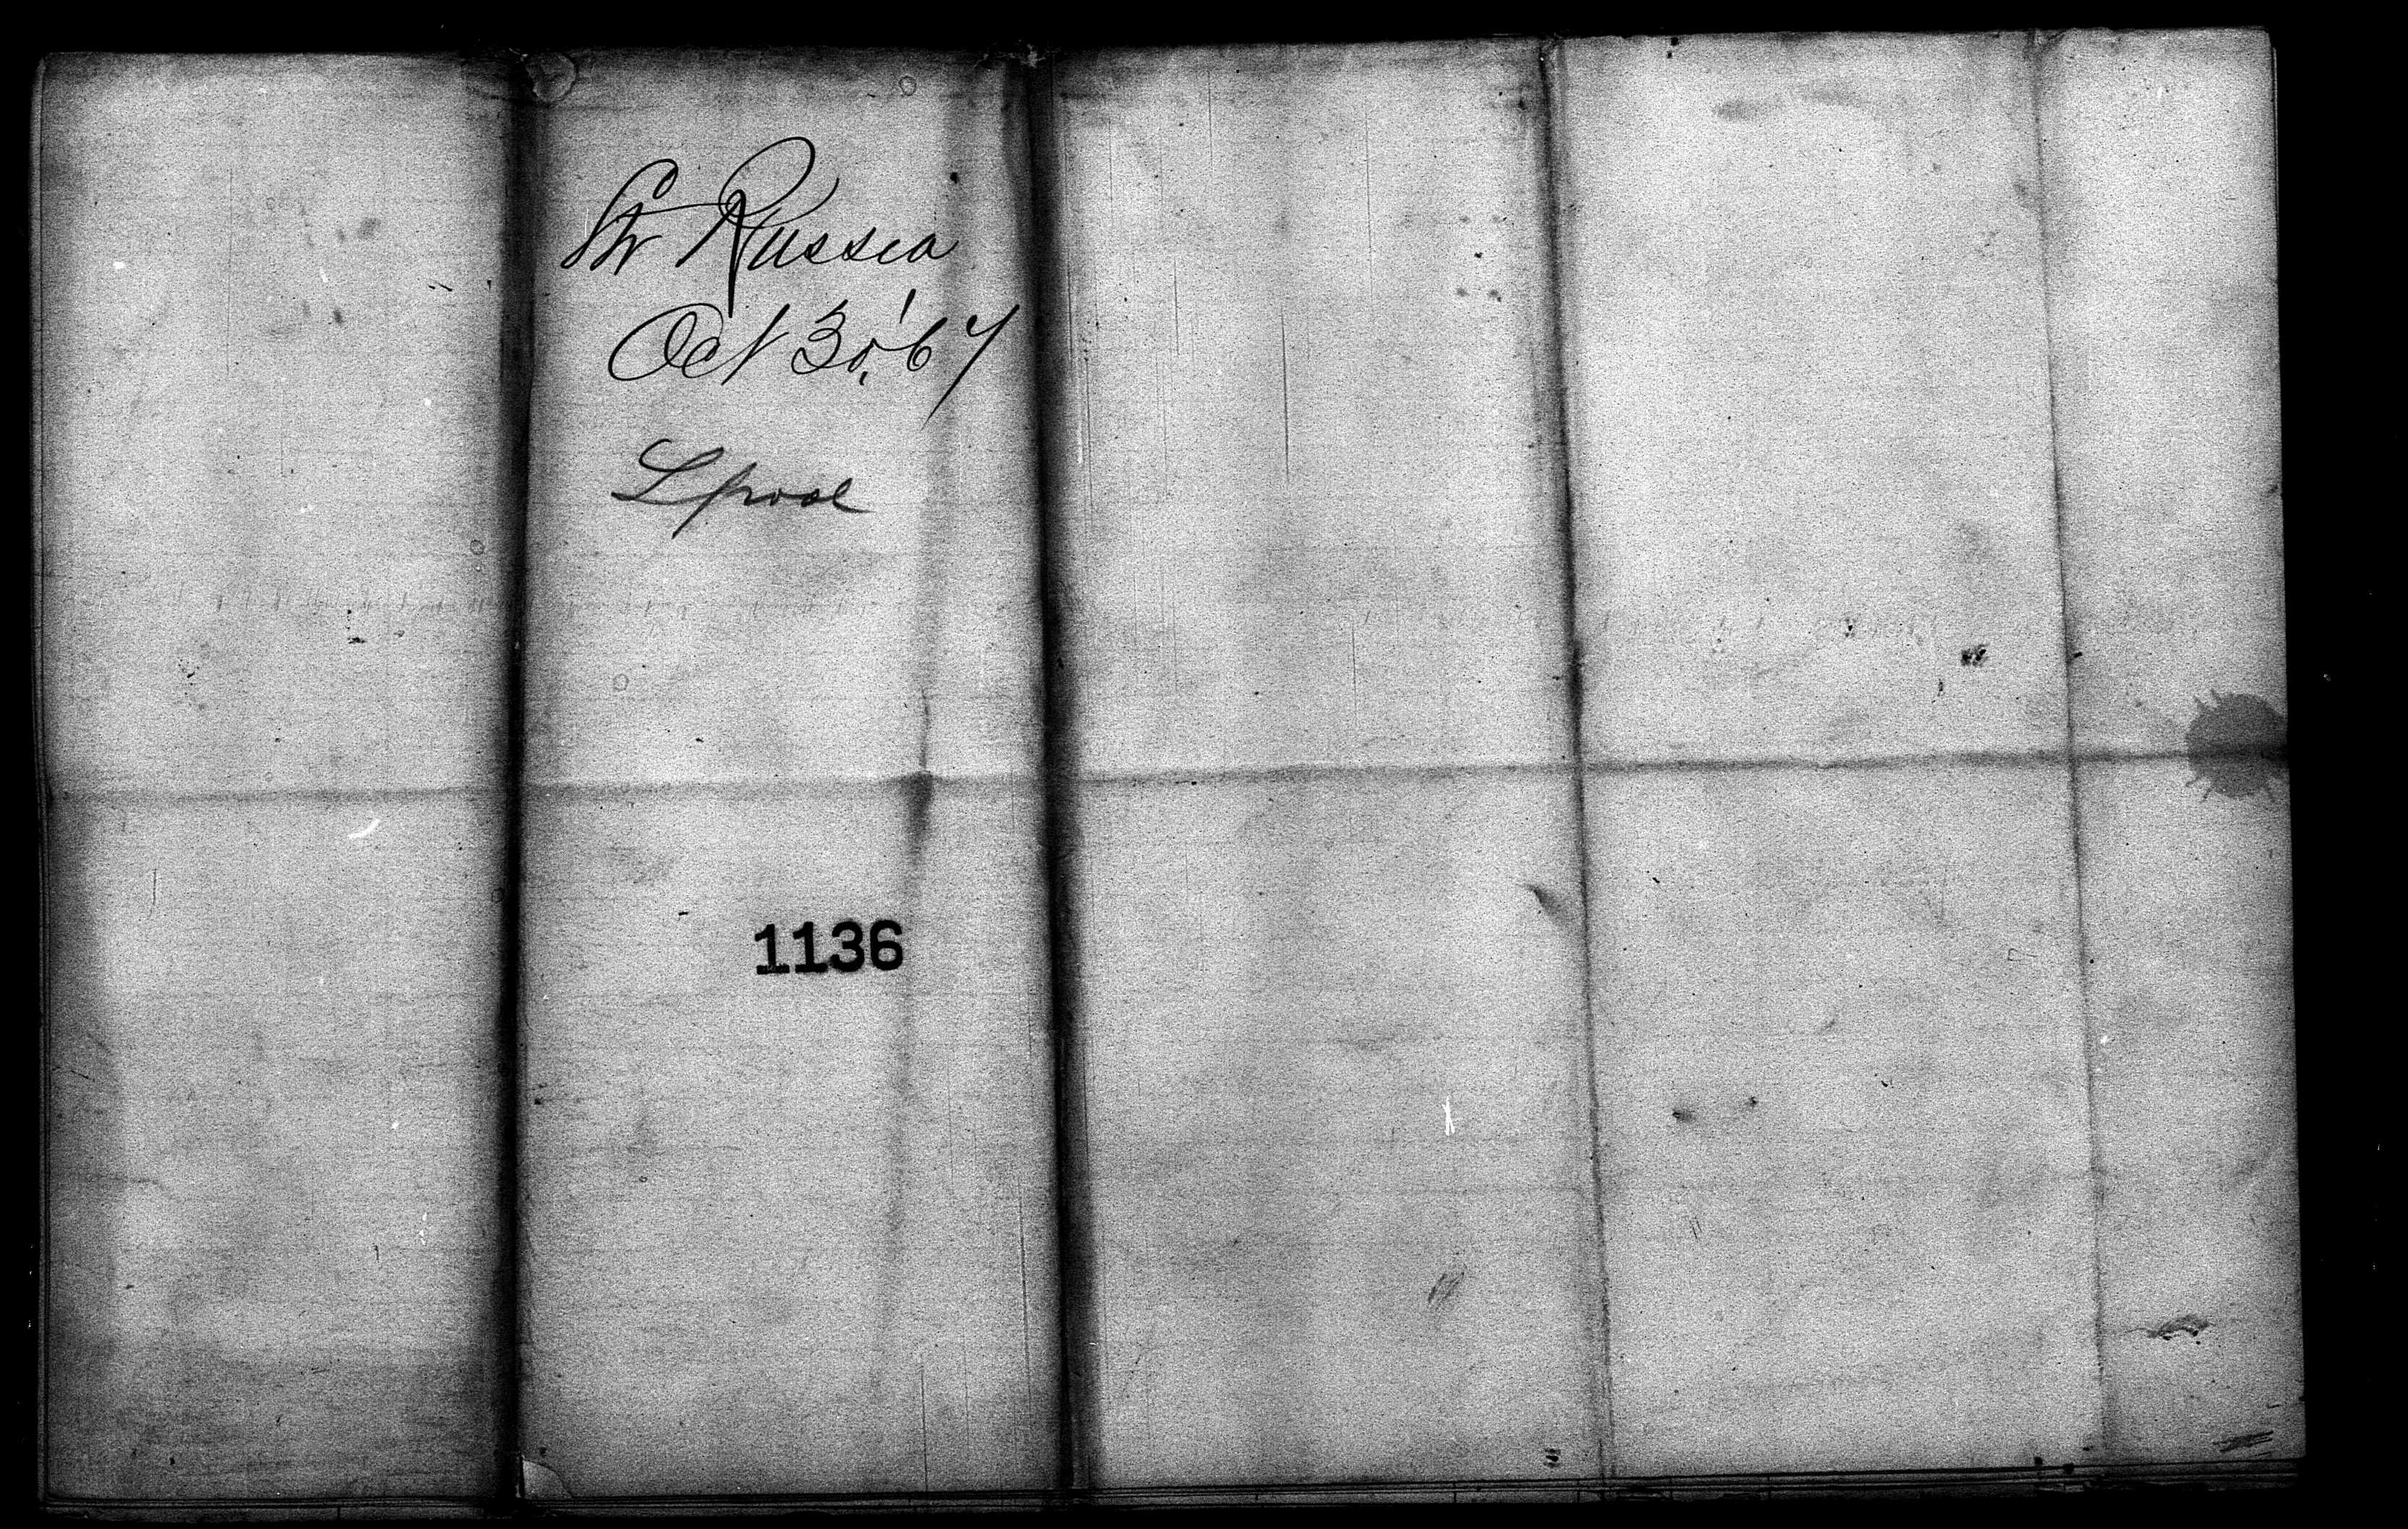 Str Russia
Oct 30, '67
Lpool
1136